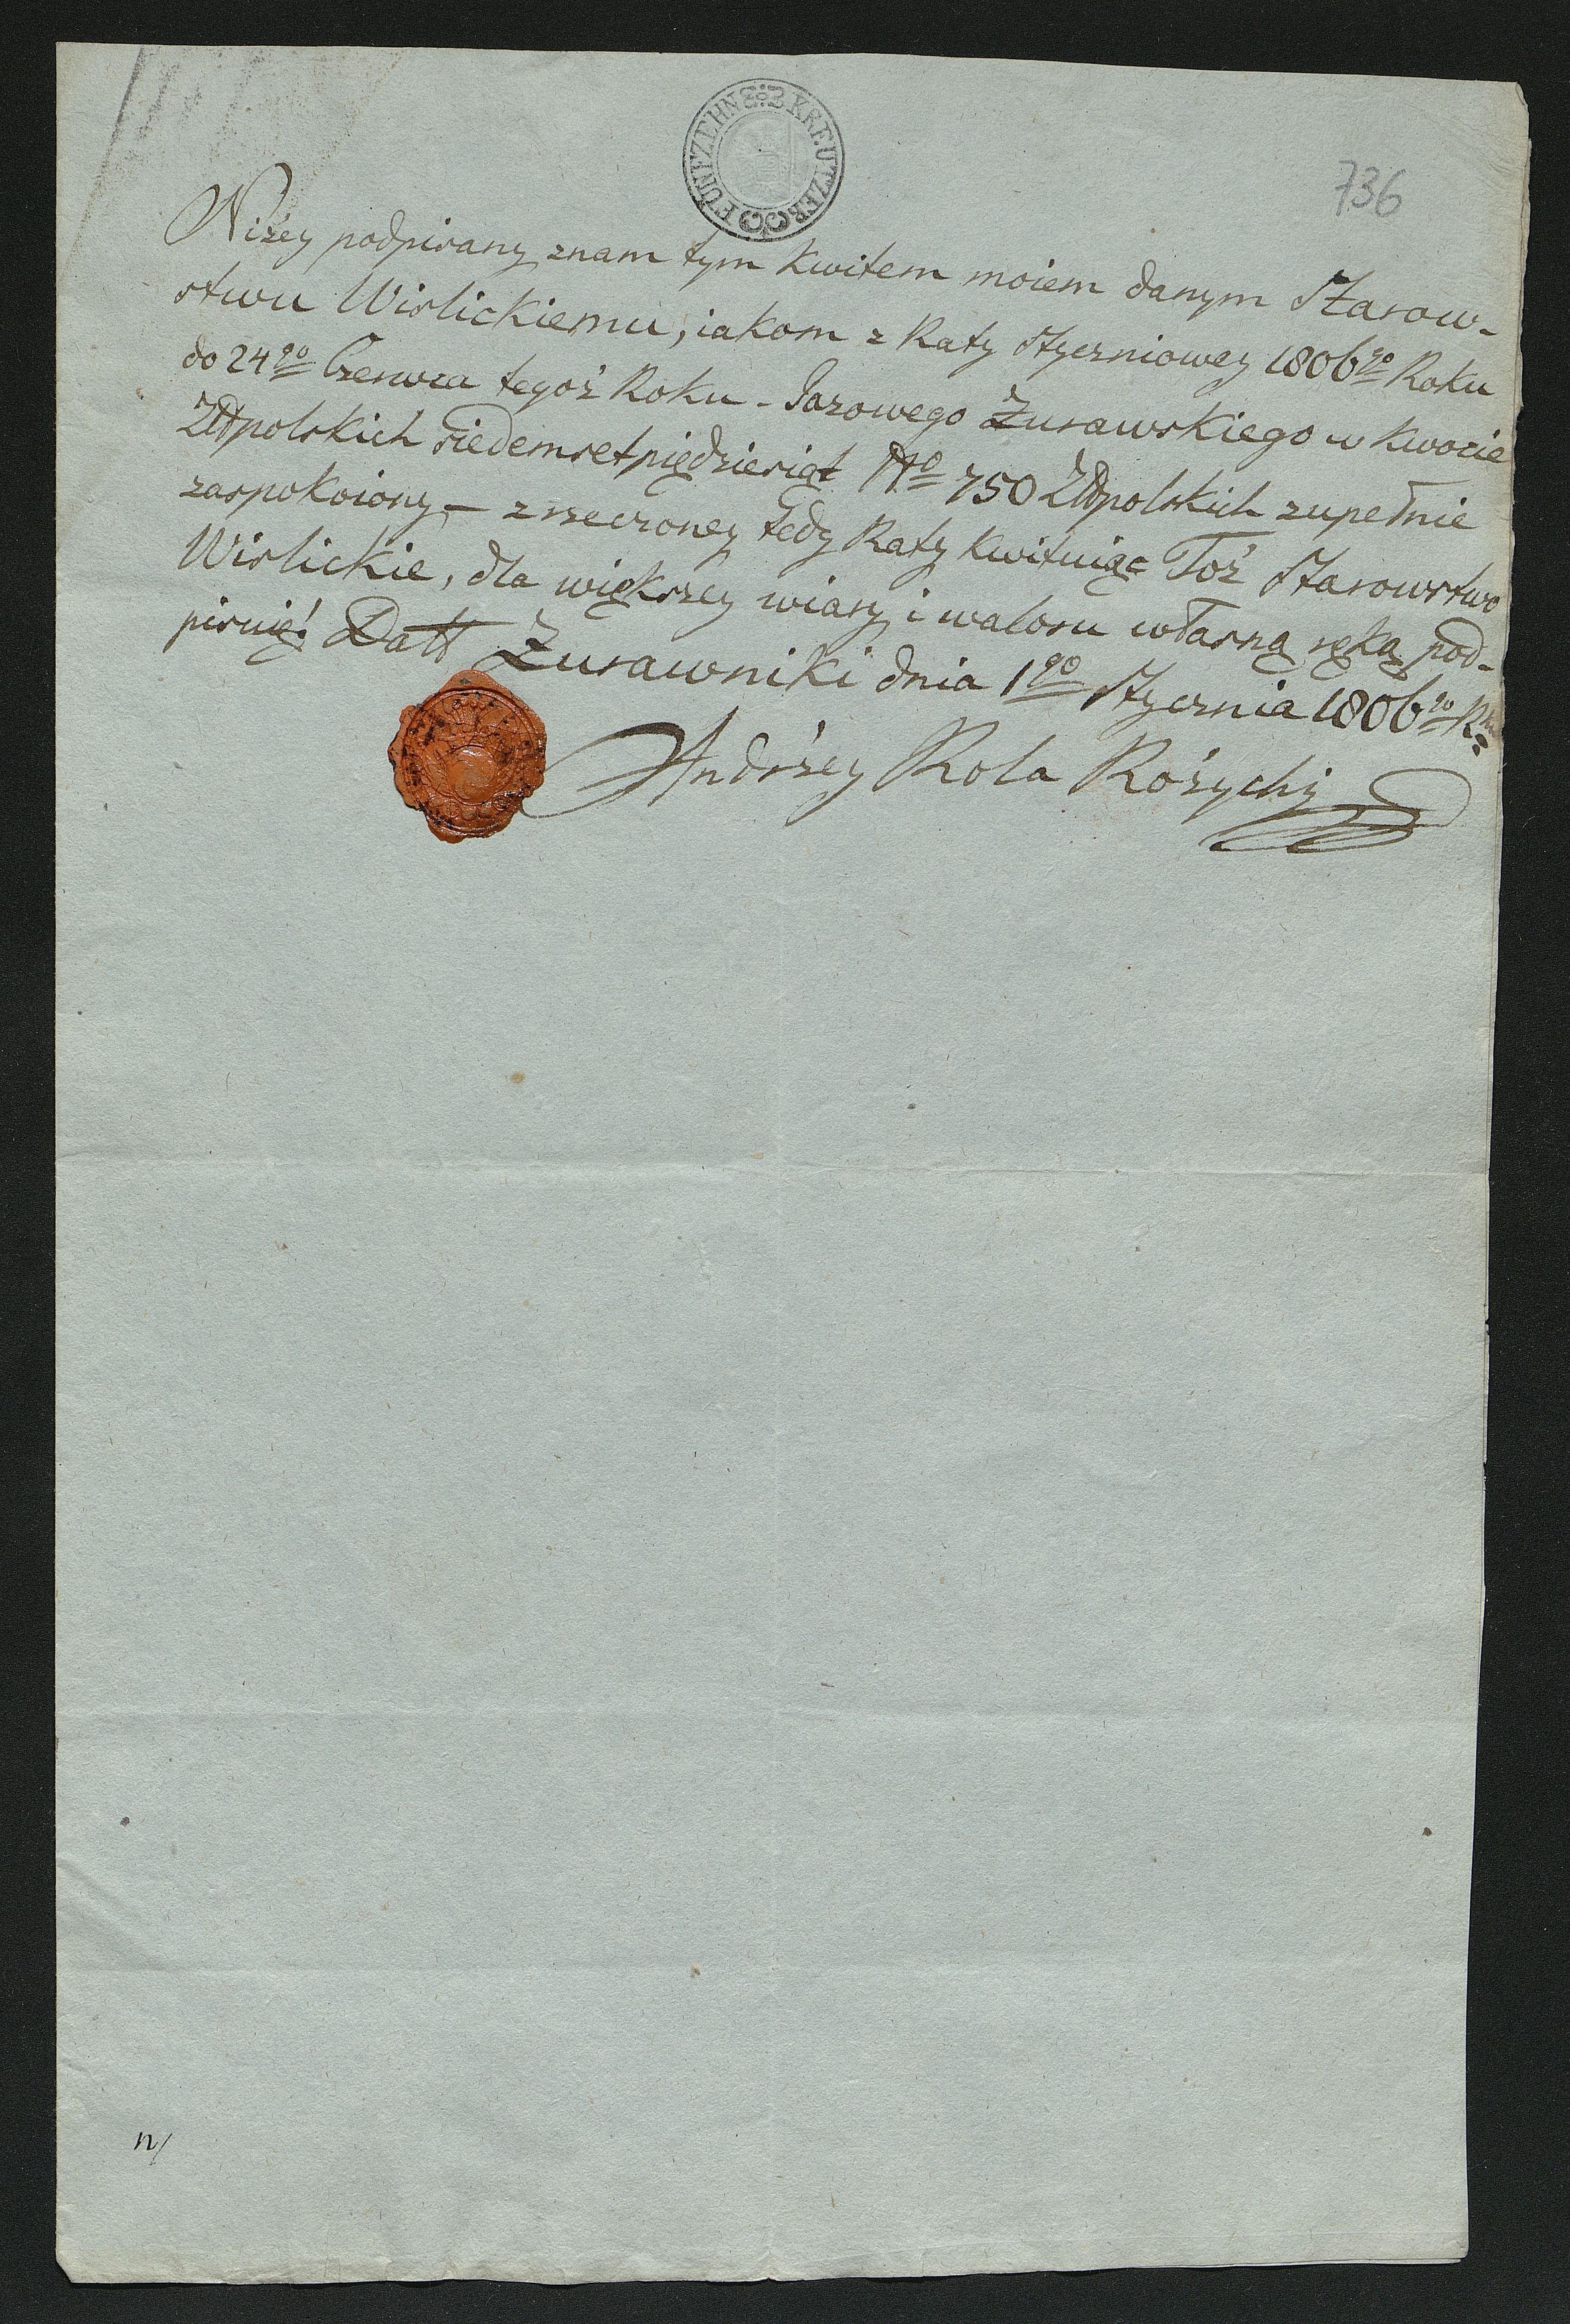 FUNFZEHN KREUTZER
736
Niżey podpisany znam tym Kwitem moiem danym Starow-
stwu Wislickiemu, iakom z Raty Styczniowey 1806go Roku
do 24go Czerwca tegoż Roku - Jazowego Żurawskiego w Kwocie
Złłpolskich siedemset piędziesiąt No 750 Złłpolskich zupełnie
zaspokoiony - z rzeczoney tedy Raty Kwituiąc Toż Starowstwo
Wislickie, dla większey wiary i waloru własną ręką pod-
pisuię! Datt Żurawniki dnia 1go Stycznia 1806go
Andrzey Rola Rożychi
n/